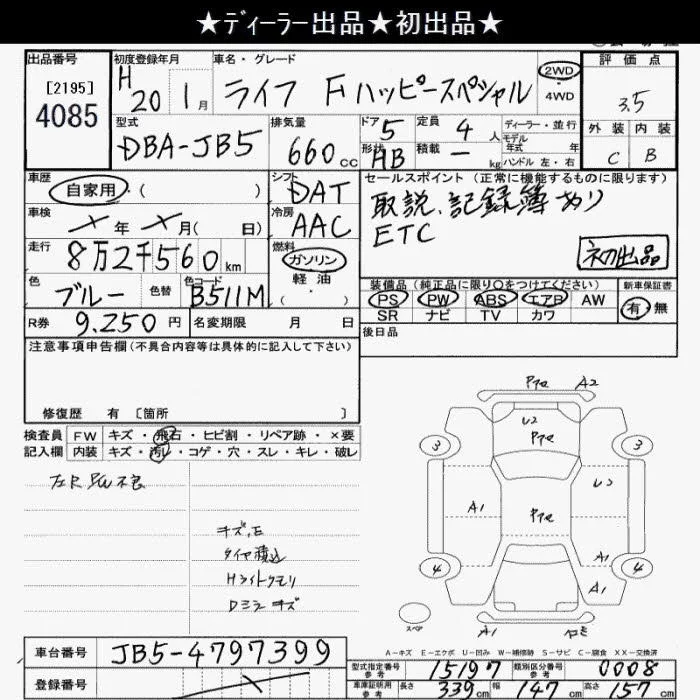 ★ディーラー出品★初出品★
出品番号 初度登録年月 車名・グレード 評価点
[2195] 4085
H 20 1月 ライフ Fハッピースペシャル 2WD・4WD 3.5
型式 排気量 ドア 定員 ディーラー・並行 外装 内装
DBA-JB5 660cc 5 4人 モデル年式 年
形状 積載 ハンドル 左・右
HB ー kg C B
車歴 シフト セールスポイント(正常に機能するものに限ります)
自家用・( ) DAT 取説、記録簿あり
車検 冷房 ETC
×年×月( 日) AAC 初出品
走行 燃料
8万2千560km ガソリン・軽油・( )
色 色替 色コード 装備品(純正品に限り○をつけてください) 新車保証書
ブルー B511M PS PW ABS エアB AW 有・無
SR ナビ TV カワ
R券 9.250円 名変期限 月 日 後日品
注意事項申告欄(不具合内容等は具体的に記入して下さい)
修復歴 有〔箇所 〕
検査員 FW キズ・飛石・ヒビ割・リペア跡・×要
記入欄 内装 キズ・汚レ・コゲ・穴・スレ・キレ・破レ
キズ、E
タイヤ積込
Hライトクモリ
Dミラーキズ
A2
U2
3 3
A1
A1
4 4
A1
スペア
A1
A-キズ E-エクボ U-凹み W-補修跡 S-サビ C-腐食 XX-交換済
車台番号 JB5-4797399
登録番号
型式指定番号 参考 15197 類別区分番号 参考 0008
車庫証明用 参考 長さ 339cm 幅 147cm 高さ 157cm